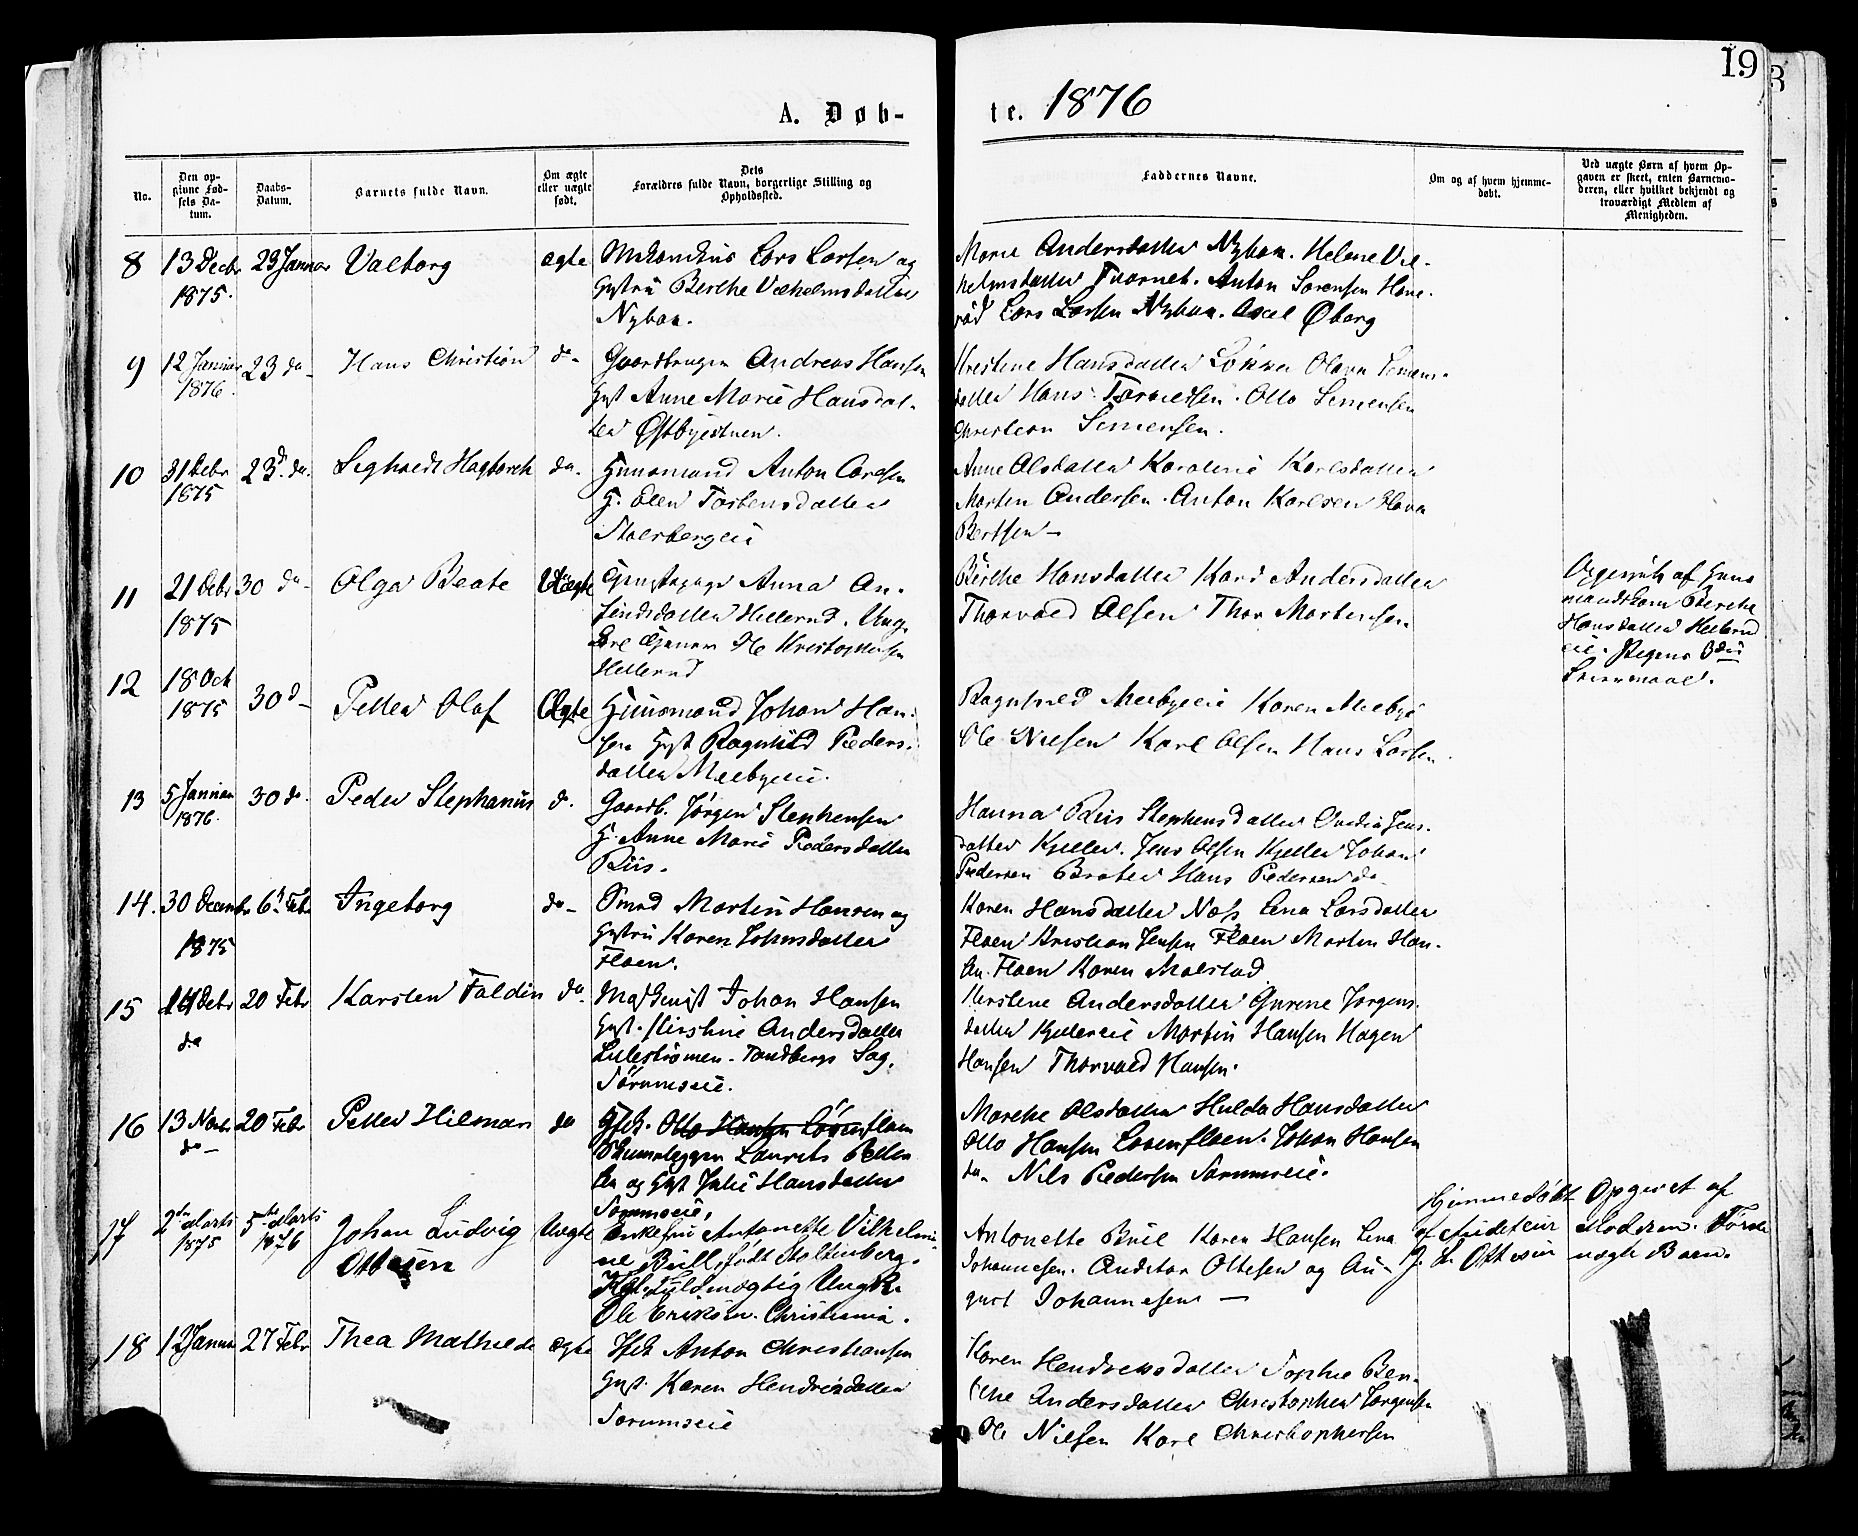 19
A. Døb-
te. 1876
No.
Den op-
givne Fød-
sels Da-
tum.
Daabs-
Datum.
Barnets fulde Navn.
Om ægte
eller uægte
født.
Dets
Forældres fulde Navn, borgerlige Stilling og
Opholdssted.
Faddernes Navne.
Om og af hvem hjemme-
døbt.
Ved uægte Børn af hvem Op-
gaven er skeet, enten Barnemo-
deren, eller hvilket bekjendt og
troværdigt Medlem af
Menigheden.
8
13 Decbr
1875.
23 Januar
Valborg
ægte
Lars Larsen og
Hustru Berthe Vilhelmsdatter
Nybak.
Marie Andersdatter Nybak. Helene Vil-
helmsdatter Anton Sørensen
Lars Larsen Nybak. Axel Øberg
9
12 Januar
1876.
23 do
Hans Christian
do
Gaardbruger Andreas Hansen
Hust Anne Marie Hansdat-
ter Østbyeituen.
Kirstine Hansdatter Løkka Olava Simens-
datter Hans Otto Simensen
Christian Simensen.
10
31 Debr
1875
23 do.
Sighardt Hagbarth
do.
Huusmand Anton Carlsen
H. Elen Torstensdatter
Anne Olsdatter Karoline Karlsdatter
Morten Andersen. Anton Karlsen
Bertsen
11
21 Debr
1875
30 do
Olga Beate
Uægte
Anna An-
Hellerud. Ung-
karl Gunnar Ole Kristophersen
Hellerud
Berthe Hansdatter Kari Andersdatter
Thorvald Olsen Thor Martinsen
Opgivet af Huus
mandskone Berthe
Hansdatter Hellerud
eie. Pigens 3die
Leiermaal.
12
18 Oct
1875
30 d
Petter Olaf
Ægte
Huusmand Johan Han-
sen Hust Ragnhild Peders-
datter Meebyeeie.
Ragnhild Meebyeeie Karen Meebye
Ole Nilsen Karl Olsen Hans Larsen
13
5 Januar
1876.
30 do.
Peder Stephanius
d.
Gaardb. Jørgen Stephensen
H. Anne Marie Pedersdatter
Riis.
Hanna Riis Stephensdatter Jens-
datter Kjeller. Jens Olsen Kjeller Johan
Pedersen Braten Hans Pedersen do
14.
30 Decembr
1875
6 Febr
Ingeborg
do
Smed Martin Hansen og
Hustru Karen Johnsdatter
Floen.
Karen Hansdatter Næs Lina Larsdatter
Floen Kristian Jensen Floen Martin Han-
sen Floen Karen Melstad
15
14 Debr
do
20 Febr
Karsten Faldin
do
Johan Hansen
Hust. Kirstine Andersdatter
Lillestrømen. Tandbergs Sag,
Sørumseie.
Kirstine Andersdatter Gurine Jørgens-
datter Kjellereie Martin Hansen Hagen
Hansen Thorvald Hansen.
16
13 Novbr
do
20 Febr
Petter Hilmar
do
Otto Hansen Løvenfloen
Laurits Petter
sen og Hust Julie Hansdatter
Sørumseie.
Marthe Olsdatter Hulda Hansdatter
Otto Hansen Løvenfloen. Johan Hansen
do. Nils Pedersen Sørumseie.
17
2den Marts
1875
5te Marts
1876
Johan Ludvig
Ottesen
Uægte
Enkefru Antonette Vilhelmi-
ne Bull, født Stoltenberg.
Ungk.
Ole Eriksen. Christiania.
Antonette Bull Karen Hansen Lina
Johannesen. Auditør Ottesen og Au-
gust Johannesen
Hjemmedøbt
af Auditeur
J. L. Ottesen
Opgivet af
Moderen. Første
uægte Barn.
18
12 Januar
27 Febr
Thea Mathilde
ægte
Anton Christiansen
Hust. Karen Hendriksdatter
Sørumseie
Karen Hendriksdatter Sophie Ben-
thie Andersdatter Christopher Jørgensen
Ole Nilsen Karl Christophersen